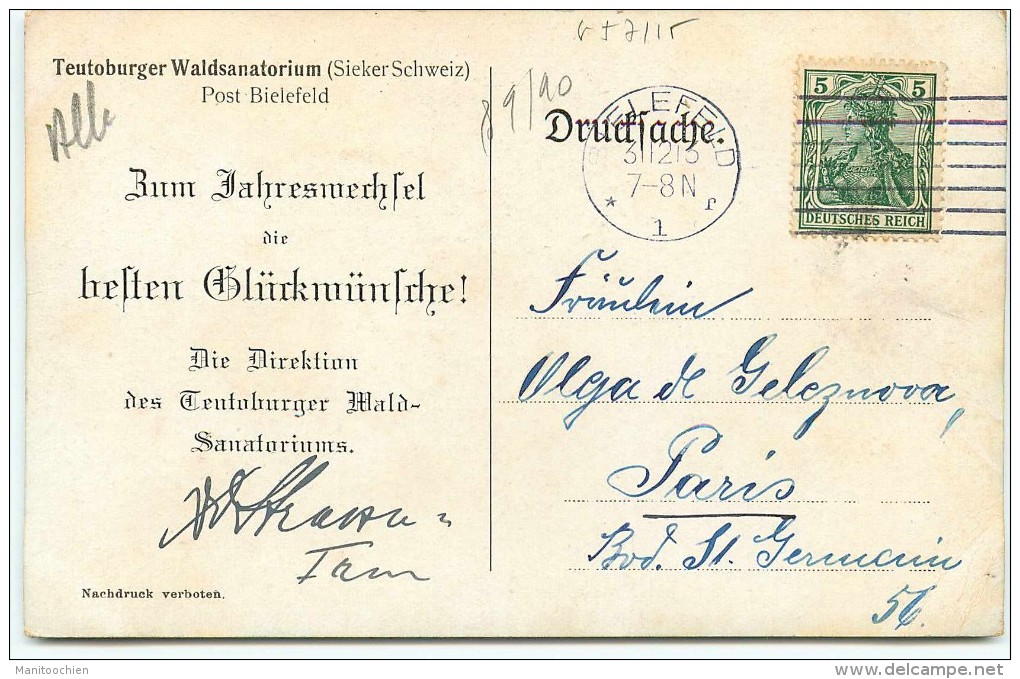 Teutoburger Waldsanatorium (Sieker Schweiz)
Post Bielefeld
Zum Jahreswechsel
die
besten Glückwünsche!
Die Direktion
des Teutoburger Wald-
Sanatoriums.
Nachdruck verboten.
89/90
Drucksache.
BIELEFELD
311213
7-8 N
* 1 r
5 5
DEUTSCHES REICH
Fräulein
Olga de Geleznova,
Paris
Bod. St. Germain
56.
Manitoochien
www.delcampe.net